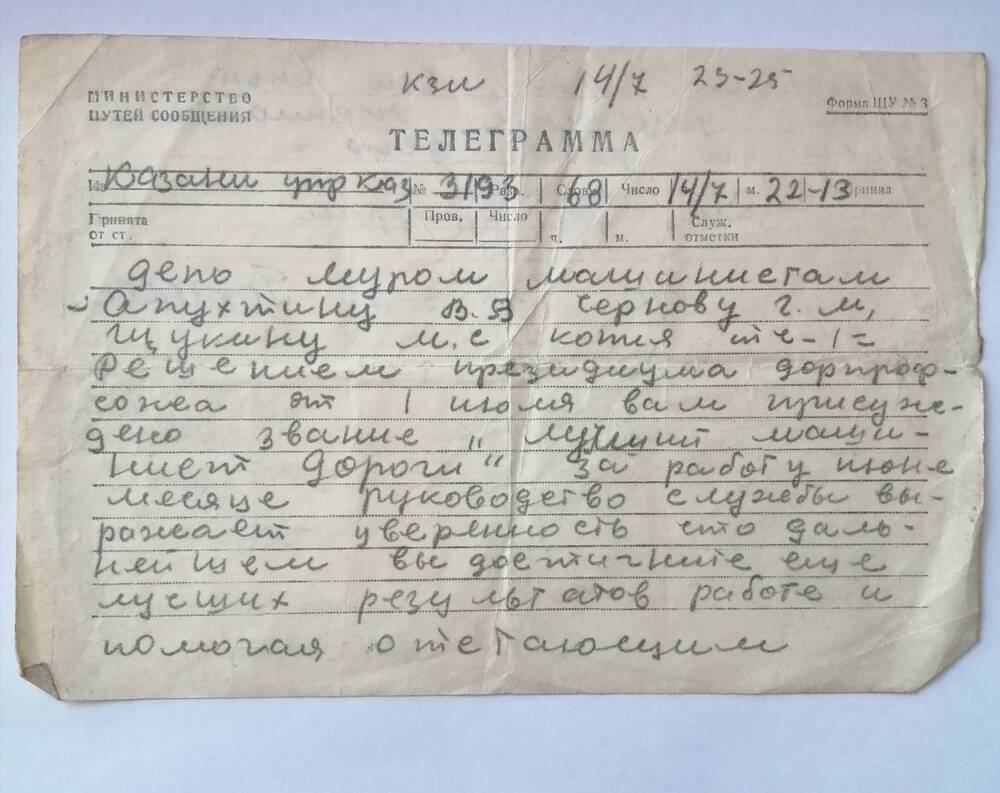 кзл 14/7 23-25
МИНИСТЕРСТВО
ПУТЕЙ СООБЩЕНИЯ
Форма ЩУ № 3
ТЕЛЕГРАММА
Из Казани упр каз № 3193 Раз. Слов 68 Число 14/7 м. 22-13 Принял
Принята
от ст.
Пров. Число ч. м.
Служ.
отметки
день муром машинистам
Апухтину В.Я Чернову г.м,
Щукину м.с копия тч-1=
Решением президиума дорпроф-
сожа от 1 июля вам присуж-
дено звание „лучший маши-
нист дороги“ за работу июне
месяце руководство службы вы-
ражает уверенность что даль-
нейшем вы достигните еще
лучших результатов работе и
помогая отстающим